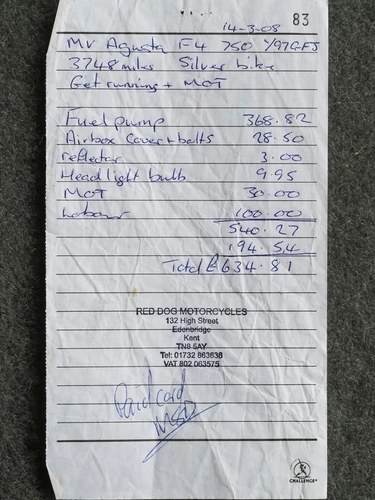 83
14-3-08
MV Agusta F4 750 Y97GFJ
3748 miles Silver bike
Get running + MOT
Fuel pump 368.82
Airbox cover + bolts 28.50
reflector 3.00
Headlight bulb 9.95
MOT 30.00
Labour 100.00
540.27
194.54
Total £634.81
RED DOG MOTORCYCLES
132 High Street
Edenbridge
Kent
TN8 5AY
Tel: 01732 863638
VAT 802 063575
Paid card
CHALLENGE